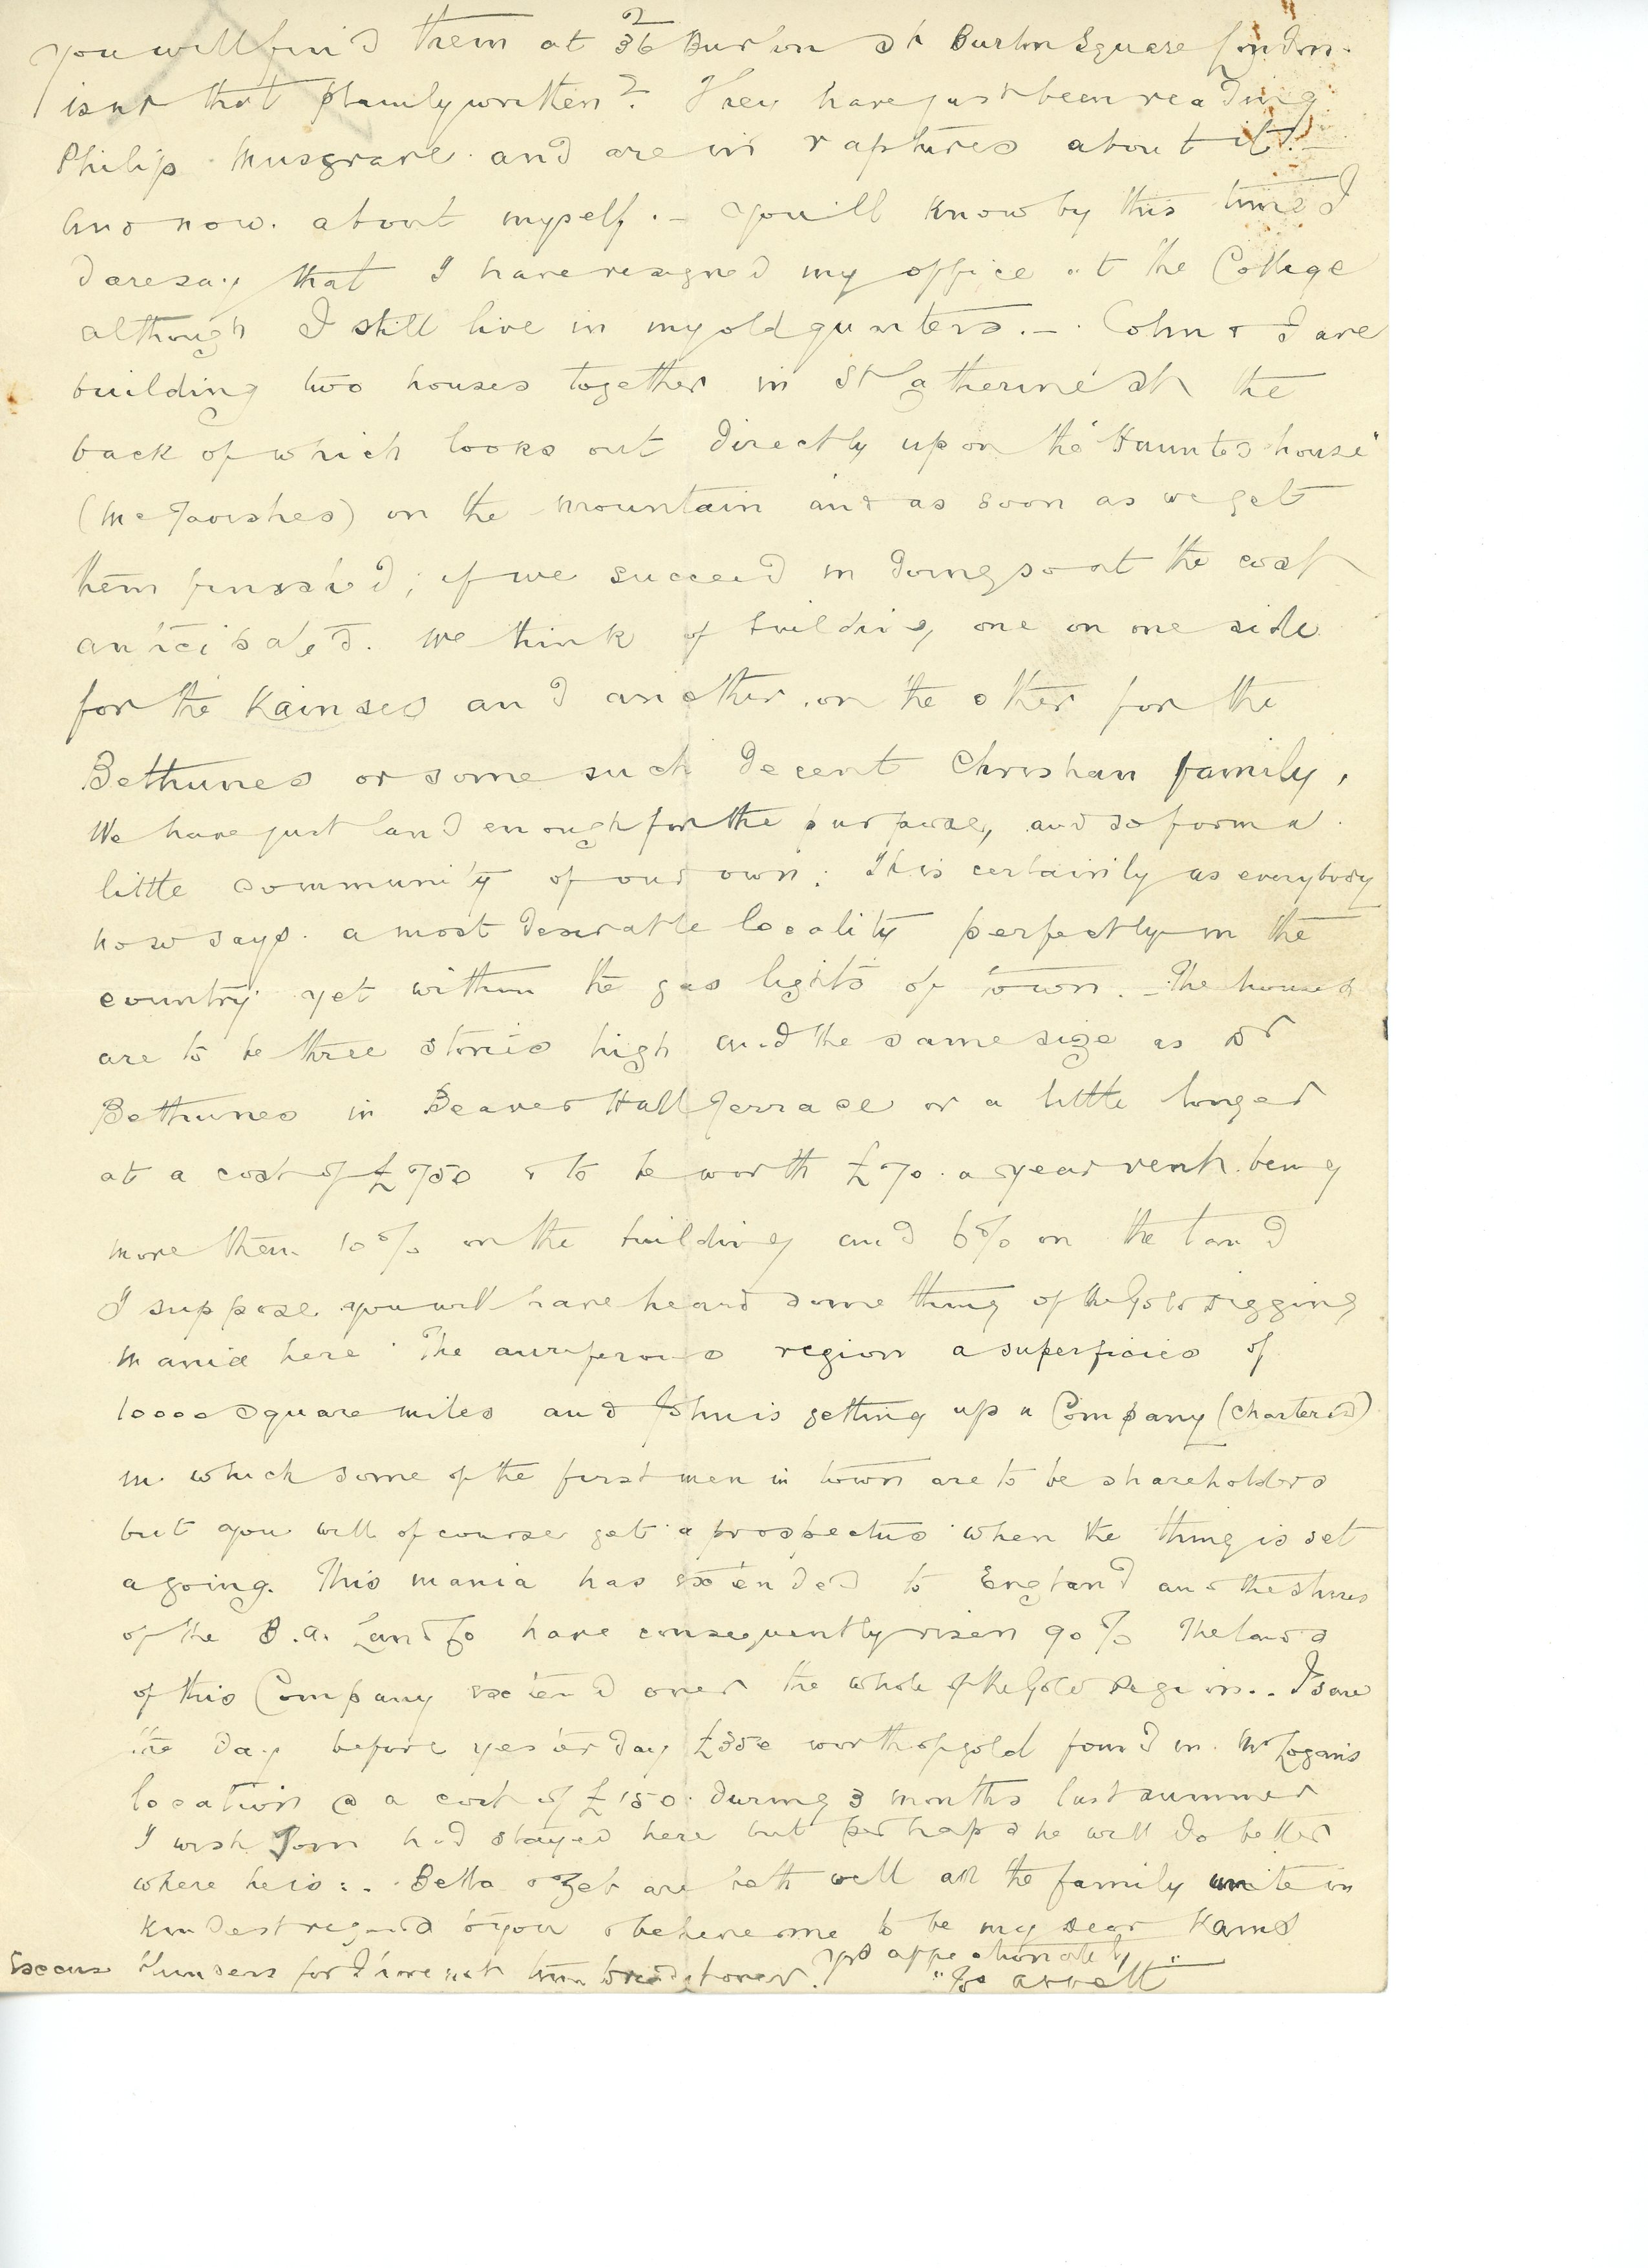 you will find them at 36 Burton St Burton Square London.
isnt that plainly written? They have just been reading
Philip Musgrave and are in raptures about it! —
And now. about myself. — You'll know by this time I
daresay that I have resigned my office at the College
although I still live in my old quarters. — . Cohn & I are
building two houses together in St Catherine St the
back of which looks out directly upon the "Haunted house"
(McTavishes) on the mountain and as soon as we get
them finished; if we succeed in doing so at the cost
anticipated. We think of building one on one side
for the Kainses and another on the other for the
Bethunes or some such decent Christian family,
We have just land enough for the purpose, and so form a
little community of our own: It is certainly as everybody
now says. a most desirable locality perfectly in the
country yet within the gas lights of town. — The houses
are to be three stories high and the same size as Dr
Bethunes in Beaver Hall Terrace or a little longer
at a cost of £750 & to be worth £70. a year rent. being
more then 10% on the building and 6% on the land
I suppose you will have heard something of the Gold digging
Mania here The auriferous region a superficies of
10000 square miles and John is getting up a Company (chartered)
in which some of the first men in town are to be shareholders
but you will of course get a prospectus when the thing is set
agoing. This mania has extended to England and the shares
of the B.A. Land Co have consequently risen 90% The lands
of this Company extend over the whole of the Gold Region.. I saw
the day before yesterday £350 worth of gold found in Mr Logan's
location @ a cost of £150 during 3 months last summer
I wish Tom had stayed here but perhaps he will do better
where he is:. Bella & Zeb are both well all the family unite in
kindest regards to you & believe me to be my dear Kains
Yrs affectionately
Excuse blunders for I have not time to read it over.
" Jos Abbott "